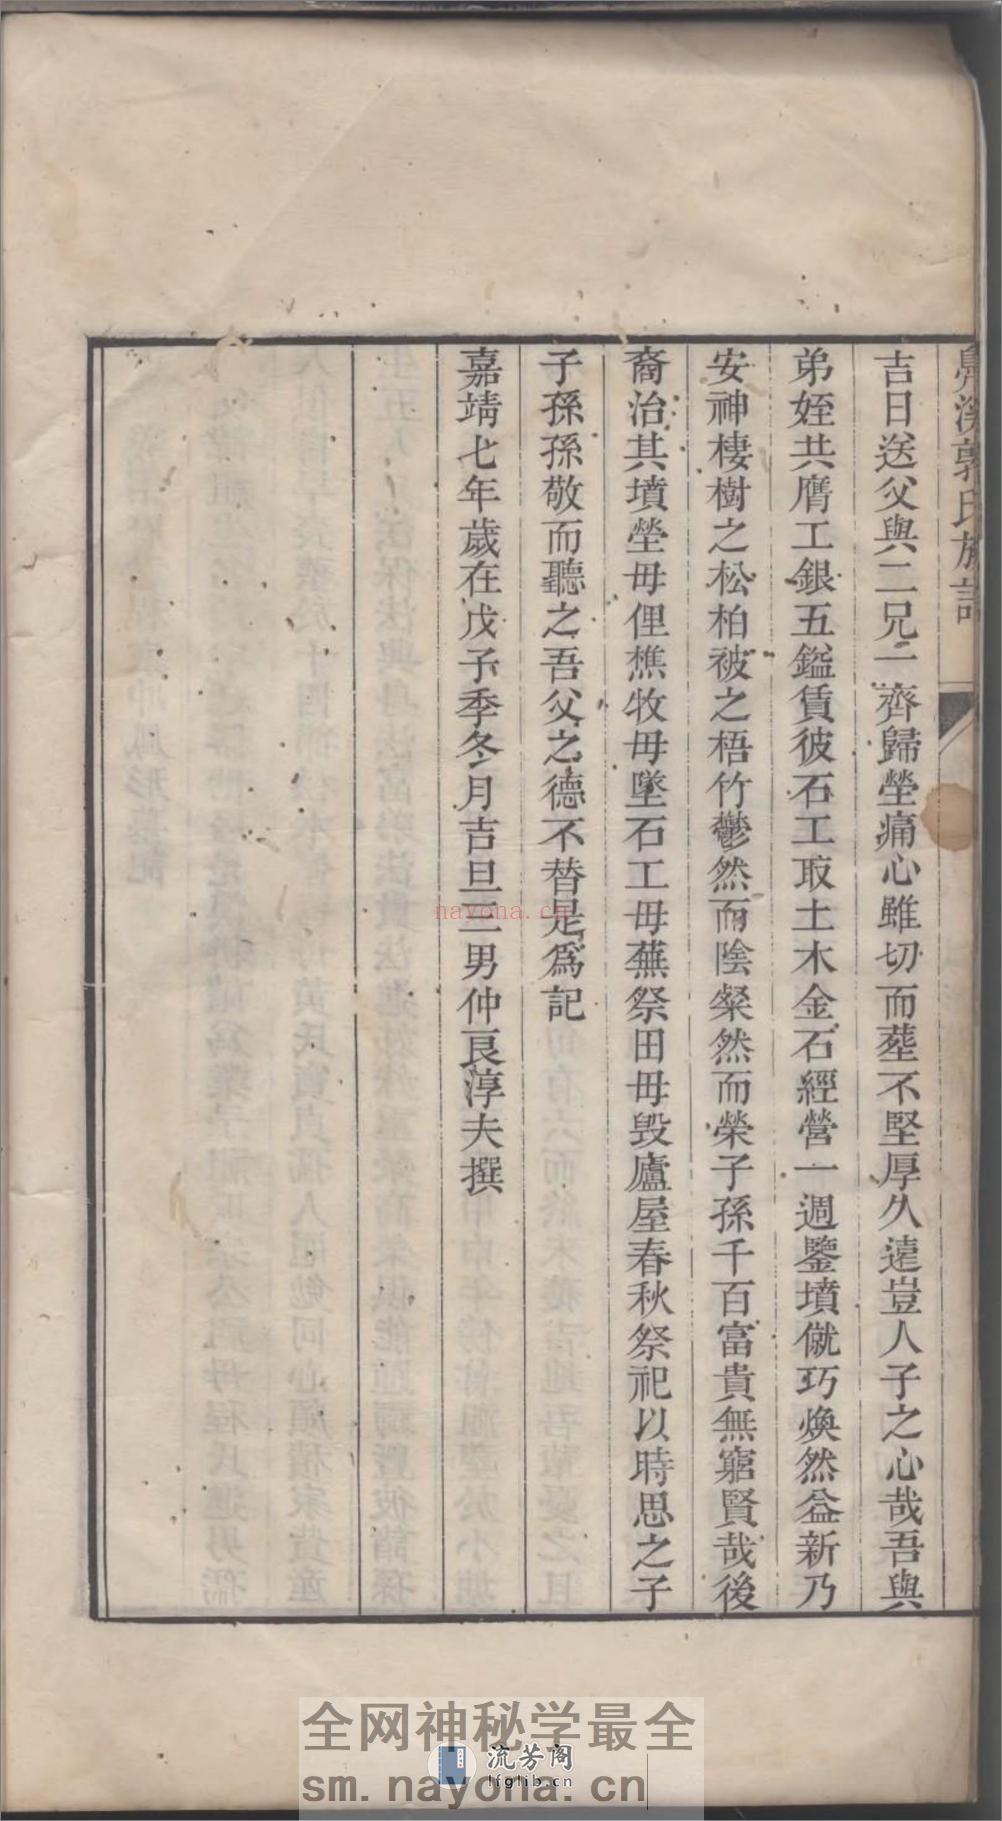 郭氏族
吉日送父與二兄二齊歸塋痛心雖切而塟不堅厚久遠豈人子之心哉吾與
弟姪共膺工銀五鎰賃彼石工取土木金石經營一週鑒墳僦巧煥然益新乃
安神棲樹之松柏被之梧竹鬱然而陰粲然而榮子孫千百富貴無窮賢哉後
裔治其墳塋毋俚樵牧毋墜石工毋蕪祭田毋毀廬屋春秋祭祀以時思之子
子孫孫敬而聽之吾父之德不替是爲記
嘉靖七年歲在戊子季冬月吉旦三男仲良淳夫撰
nayona.cn
全网神秘学最全
流芳阁
lfglib.cn
sm.nayona.cn